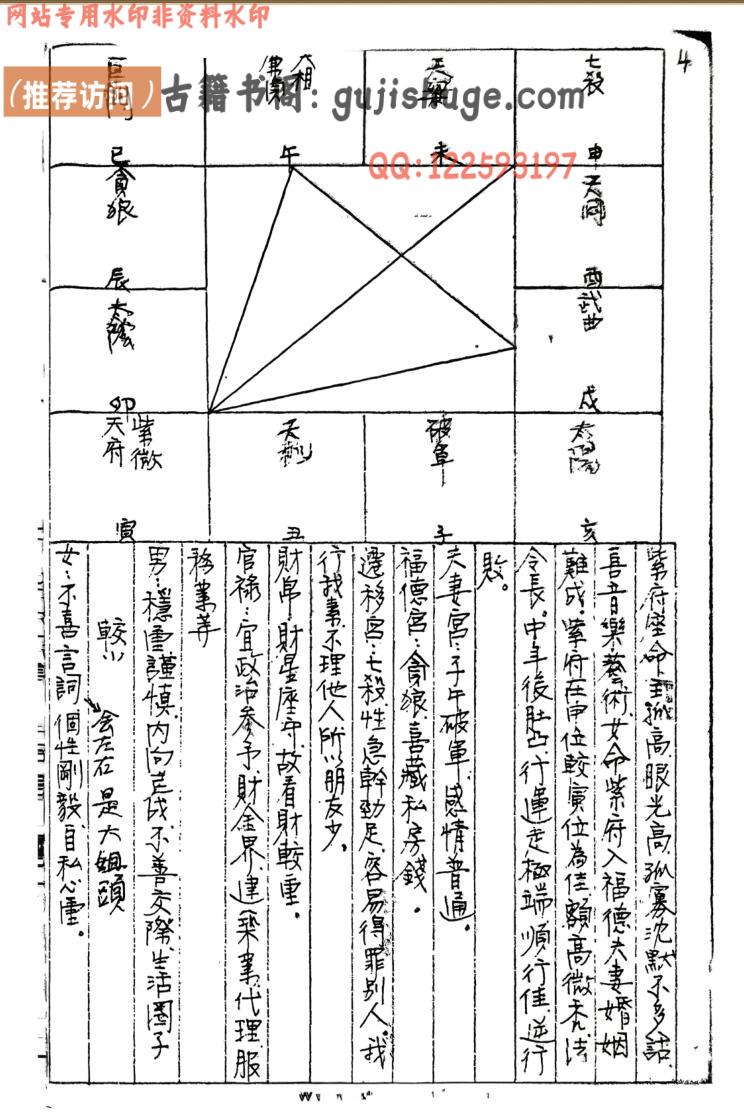 网站专用水印非资料水印
(推荐访问)古籍书阁:gujishuge.com
QQ:122593197
4
巨門
巳
天相
午
天梁
未
七殺
申
貪狼
辰
天同
酉
太陰
卯
武曲
戌
紫微
天府
寅
天機
丑
破軍
子
太陽
亥
紫府座命主孤高眼光高、孤寡沈默不多話、
喜音樂、藝術、女命紫府入福德夫妻婚姻
難成、紫府在申位較寅位為佳、額高微禿、法
令長。中年後肚凸、行運走極端順行佳、逆行
敗。
夫妻宮：子午破軍、感情普通。
福德宮：貪狼、喜藏私房錢。
遷移宮：七殺性急幹勁足、容易得罪別人、我
行我素不理他人所以朋友少。
財帛：財星座守、故看財較重。
官祿：宜政治參予、財金界、建築業、代理服
務業等
男：穩重謹慎、內向老成不善交際、生活圈子
較小
會左右是大姐頭
女：不喜言詞個性剛毅自私心重。